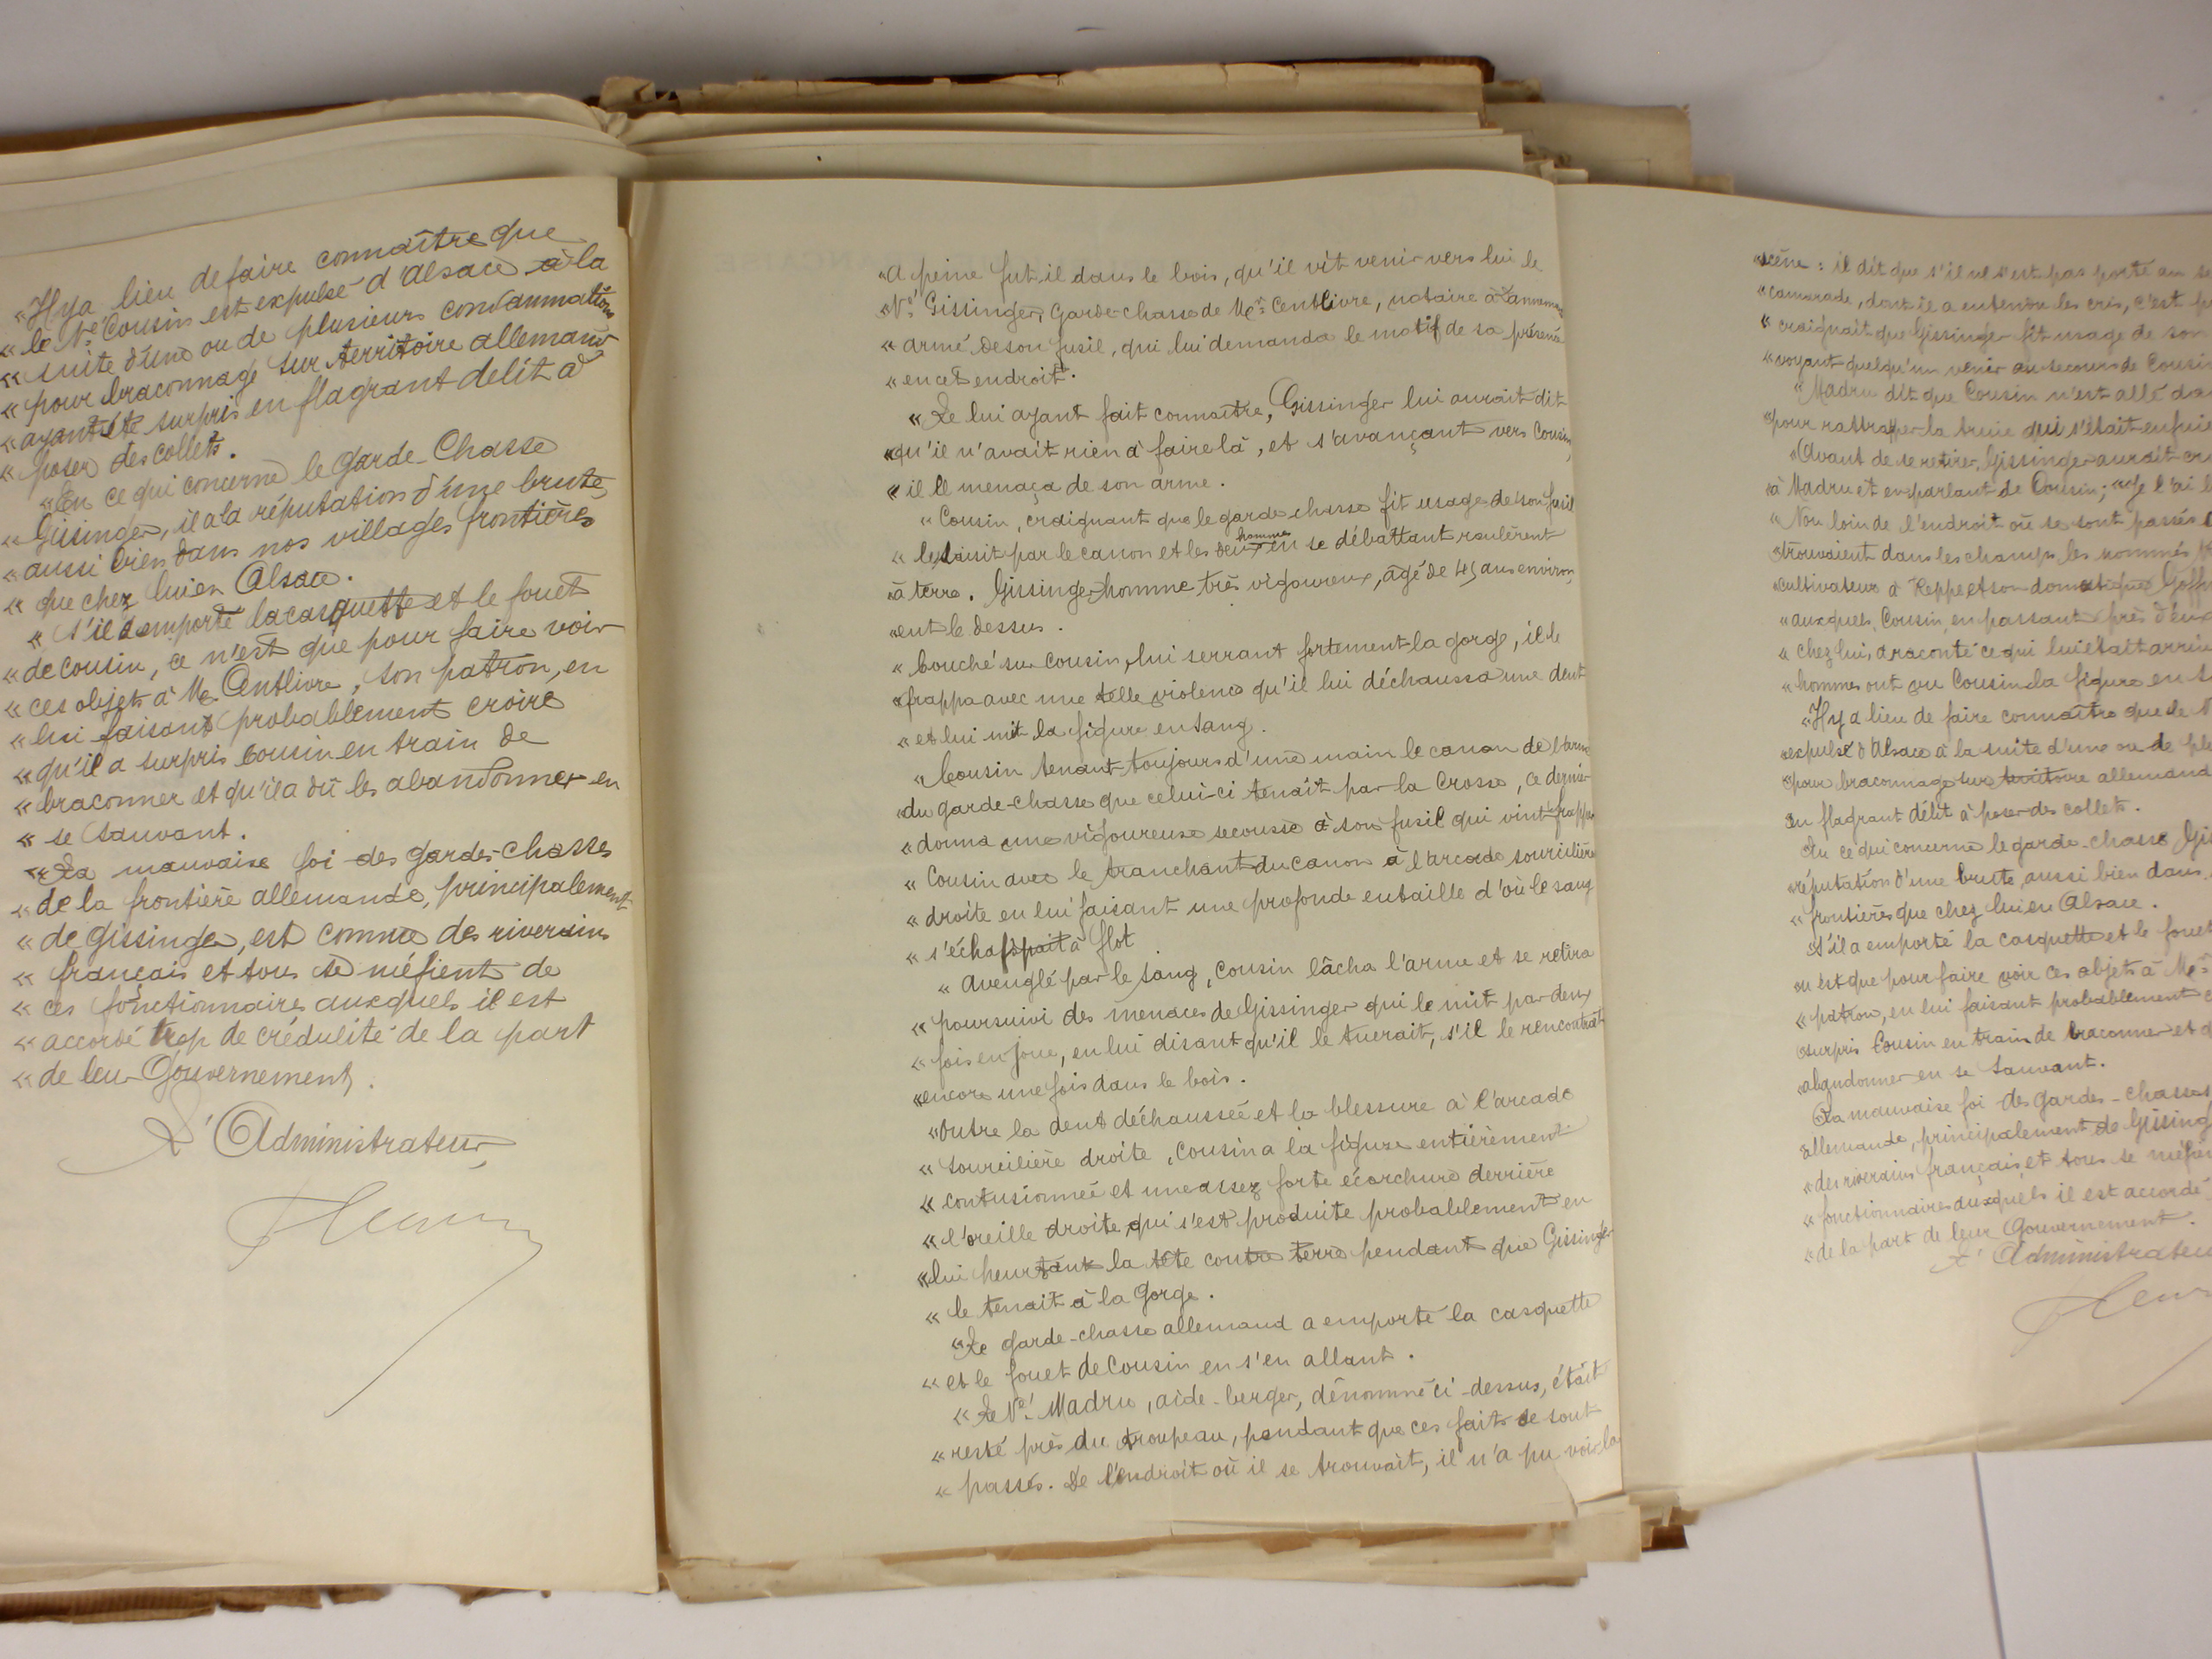 « Il y a lieu de faire connaître que
« le Né Cousin est expulsé d'Alsace à la
« suite d'une ou de plusieurs condamnations
« pour braconnage sur territoire allemand
« ayant été surpris en flagrant délit à
« poser des collets.
« En ce qui concerne le garde-Chasse
« Gissinger, il a la réputation d'une brute,
« aussi bien dans nos villages frontières
« que chez lui en Alsace.
« S'il a emporté la casquette et le fouet
« de Cousin, ce n'est que pour faire voir
« ces objets à Me Centlivre, son patron, en
« lui faisant probablement croire
« qu'il a surpris Cousin en train de
« braconner et qu'il a dû les abandonner en
« se sauvant.
« La mauvaise foi des gardes-chasses
« de la frontière allemande, principalement
« de Gissinger, est connue des riverains
« français et tous se méfient de
« ces fonctionnaires auxquels il est
« accordé trop de crédulité de la part
« de leur Gouvernement.
L'Administrateur,
« A peine fut-il dans le bois, qu'il vit venir vers lui le
« Né Gissinger, garde-chasse de Me Centlivre, notaire à
« armé de son fusil, qui lui demanda le motif de sa présence
« en cet endroit.
« Le lui ayant fait connaître, Gissinger lui aurait dit
« qu'il n'avait rien à faire là, et s'avançant vers Cousin,
« il le menaça de son arme.
« Cousin, craignant que le garde chasse fit usage de son fusil
« le saisit par le canon et les deux hommes en se débattant roulèrent
« à terre. Gissinger homme très vigoureux, âgé de 45 ans environ,
« eut le dessus.
« Couché sur Cousin, lui serrant fortement la gorge, il le
« frappa avec une telle violence qu'il lui déchaussa une dent
« et lui mit la figure en sang.
« Cousin tenant toujours d'une main le canon de l'arme
« du garde-chasse que celui-ci tenait par la Crosse, ce dernier
« donna une vigoureuse secousse à son fusil qui vint frapper
« Cousin avec le tranchant du canon à l'arcade sourcilière
« droite en lui faisant une profonde entaille d'où le sang
« s'échappait à flot
« Aveuglé par le sang, Cousin lâcha l'arme et se retira
« poursuivi des menaces de Gissinger qui le mit par deux
« fois en joue, en lui disant qu'il le tuerait, s'il le rencontrait
« encore une fois dans le bois.
« Outre la dent déchaussée et la blessure à l'arcade
« sourcilière droite, Cousin a la figure entièrement
« contusionnée et une assez forte écorchure derrière
« l'oreille droite, qui s'est produite probablement en
« lui heurtant la tête contre terre pendant que Gissinger
« le tenait à la Gorge.
« Le garde-chasse allemand a emporté la casquette
« et le fouet de Cousin en s'en allant.
« Le Né Madru, aide-berger, dénommé ci-dessus, était
« resté près du troupeau, pendant que ces faits se sont
« passés. De l'endroit où il se trouvait, il n'a pu voir la
« scène : il dit que s'il ne s'est pas porté au
« camarade, dont il a entendu les cris, c'est
« craignait que Gissinger fit usage de son
« voyant quelqu'un venir au secours de Cousin
« Madru dit que Cousin n'est allé
« pour rattraper la truie qui s'était enfuie
« Avant de se retirer, Gissinger aurait
« à Madru et en parlant de Cousin; « Je l'ai
« Non loin de l'endroit où se sont passés
« trouvaient dans les champs les nommés
« cultivateur à Reppe et son domestique
« auxquels, Cousin, en passant près d'eux
« chez lui, a raconté ce qui lui était arrivé
« hommes ont vu Cousin la figure en
« Il y a lieu de faire connaître que le
« expulsé d'Alsace à la suite d'une ou de
« pour braconnage sur territoire allemand
« en flagrant délit à poser des collets.
En ce qui concerne le garde-chasse
« réputation d'une brute, aussi bien dans
« frontières que chez lui en Alsace.
S'il a emporté la casquette et le fouet
n'est que pour faire voir ces objets à Me
« patron, en lui faisant probablement
« surpris Cousin en train de braconner et
« abandonner en se sauvant.
La mauvaise foi des gardes-chasses
allemande, principalement de
« des riverains français et tous se
« fonctionnaires auxquels il est accordé
« de la part de leur Gouvernement.
L'Administrateur